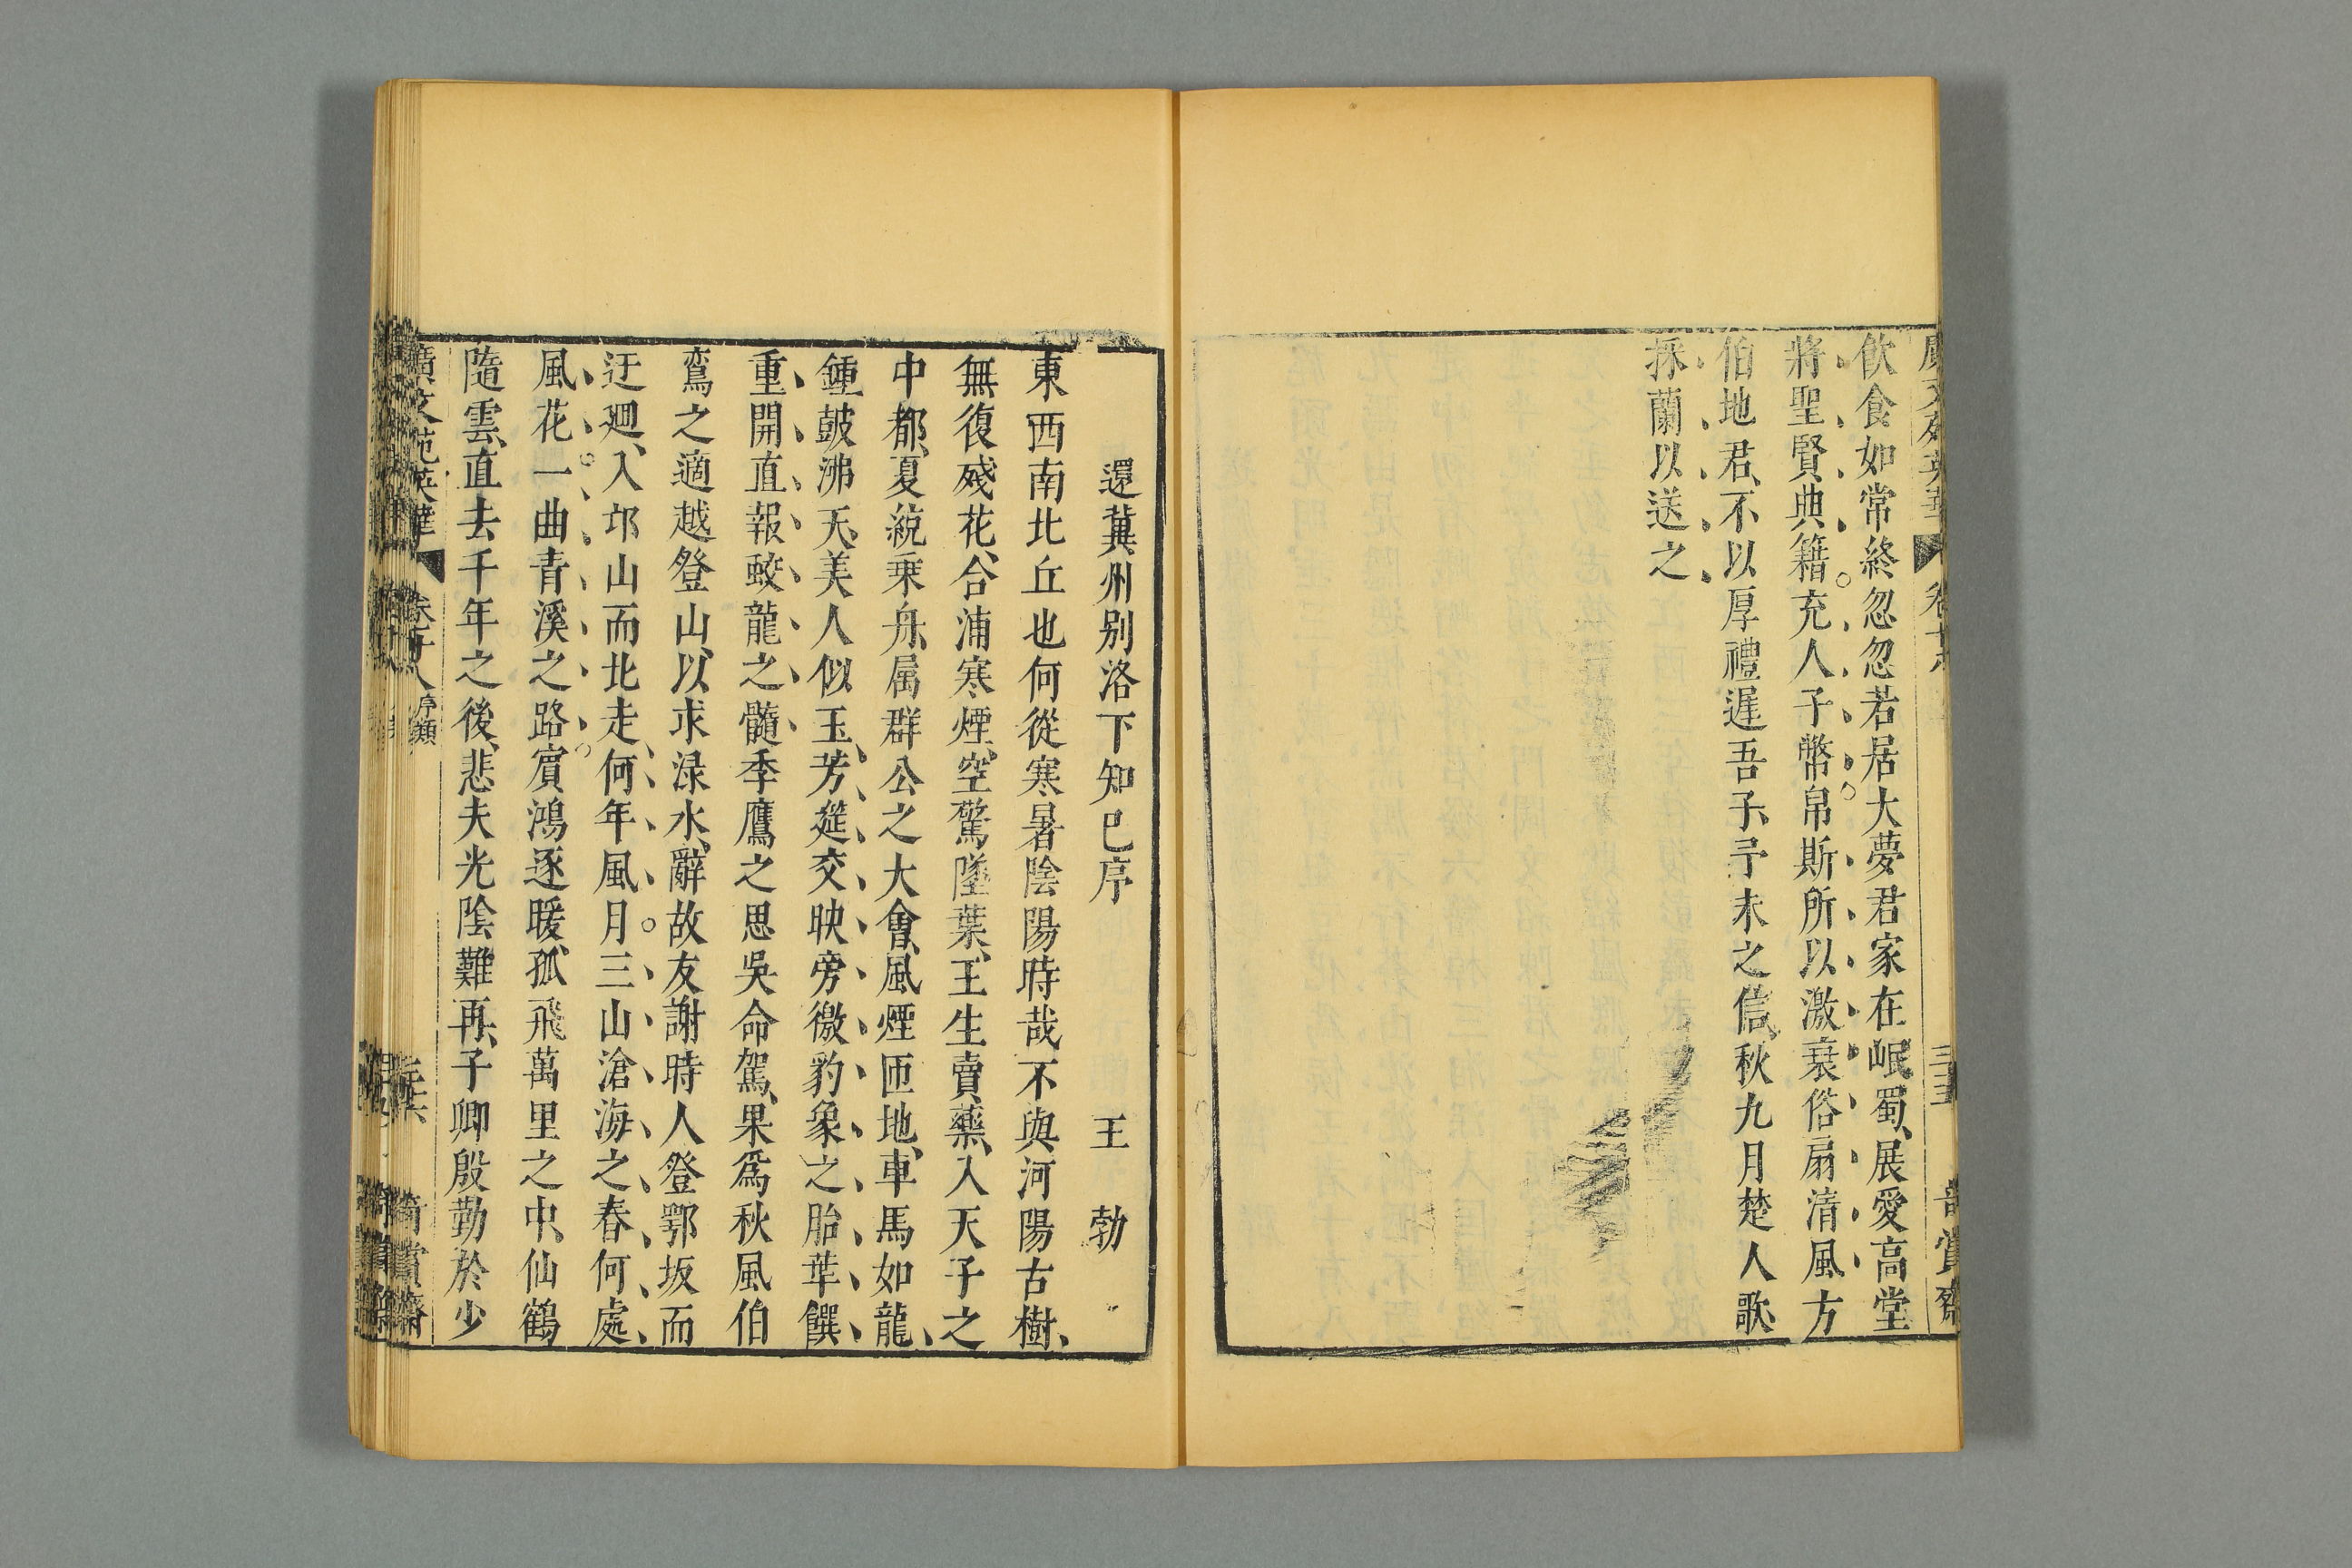 飲食如常終忽忽若居大夢君家在岷蜀展愛高堂
將聖賢典籍充人子幣帛斯所以激衰俗扇清風方
伯地君不以厚禮遲吾子予未之信秋九月楚人歌
採蘭以送之
還冀州別洛下知己序 王勃
東西南北丘也何從寒暑陰陽時哉不與河陽古樹
無復殘花合浦寒煙空驚墜葉王生賣藥入天子之
中都夏統乗舟属群公之大會風煙匝地車馬如龍
鍾皷沸天美人似玉芳筵交映旁徵豹象之胎華饌
重開直報蛟龍之髓季鷹之思吳命駕果爲秋風伯
鸞之適越登山以求淥水辭故友謝時人登鄂坂而
迂廻入邙山而北走何年風月三山滄海之春何處
風花一曲青溪之路賔鴻逐暖孤飛萬里之中仙鶴
隨雲直去千年之後悲夫光陰難再子卿殷勤於少
廣文苑英華 序類 三六 賞齋